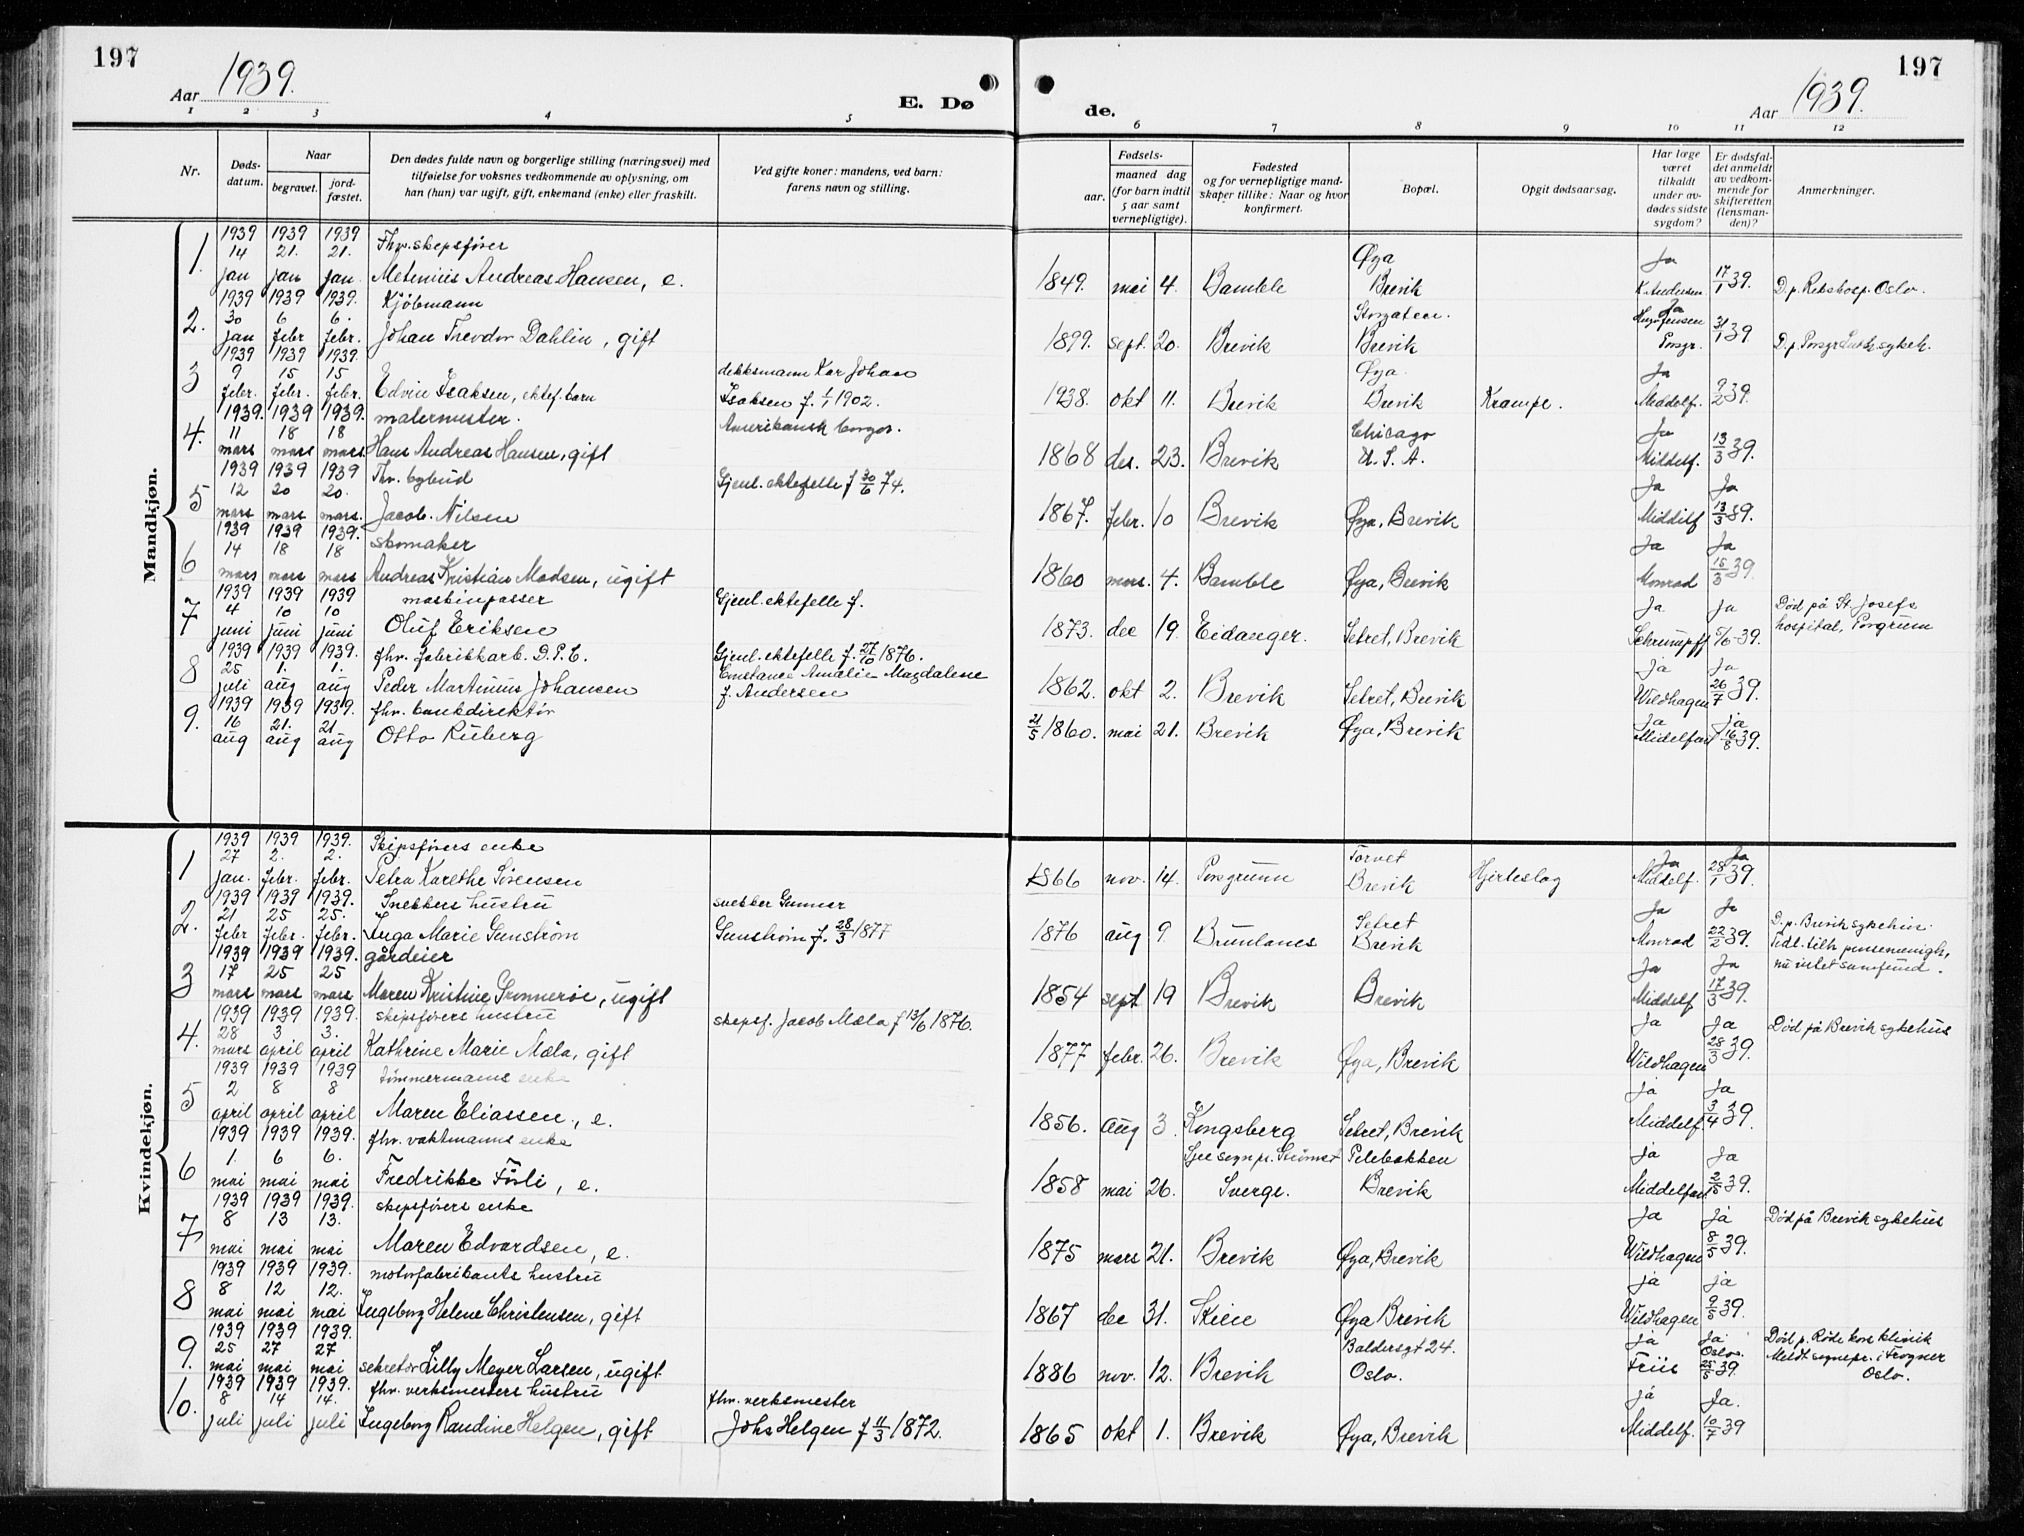 197
Aar 1939.
E. Dø
de.
Aar 1939.
197
1 2 3 4 5 6 7 8 9 10 11 12
Nr.
Døds-
datum.
Naar
begravet.
jord-
fæstet.
Den dødes fulde navn og borgerlige stilling (næringsvei) med
tilføielse for voksnes vedkommende av oplysning, om
han (hun) var ugift, gift, enkemand (enke) eller fraskilt.
Ved gifte koner: mandens, ved barn:
farens navn og stilling.
Fødsels-
aar.
maaned dag
(for barn indtil
5 aar samt
vernepligtige).
Fødested
og for vernepligtige mand-
skaper tillike: Naar og hvor
konfirmert.
Bopæl.
Opgit dødsaarsag.
Har læge
været
tilkaldt
under av-
dødes sidste
sygdom?
Er dødsfal-
det anmeldt
av vedkom-
mende for
skifteretten
(lensman-
den)?
Anmerkninger.
Mandkjøn.
1939 1939 1939 Fhv. skipsfører Øya Ja
1. 14 jan 21. jan 21. jan. Andreas Hansen, e. 1849. mai 4. Bamble Brevik K. Andersen 17/1 39. D. p. Rikshosp. Oslo.
1939 1939 1939. Kjøbmann Ja
2. 30 jan 6 febr 6. febr. Johan Trevdor Dahlin, gift 1899. sept. 20. Brevik Brevik Porsgr. 31/1 39. D. p. Porsgr. Luth. sykeh.
1939 1939 1939. dekksmann Kar Johan Øya. Ja
3 9 febr. 15 febr. 15 febr. Edvin Isaksen, ektef. barn Isaksen f. 1/1 1902. 1938. okt 11. Brevik Brevik Krampe. Middelf. 9/2 39.
1939. 1939 1939. malermester. Amerikansk borger. Chicago Ja
4. 11 mars 18 mars 18 mars. Hans Andreas Hansen, gift 1868 des. 23. Brevik U. S. A. Middelf. 13/3 39.
1939 1939 1939 Fhv. bybud Gjenl. ektefelle f 30/6 74. Ja Ja
5 12 mars 20 mars 20. mars. Jacob. Nilsen 1867. febr. 10 Brevik Øya, Brevik Middelf 13/3 39.
1939 1939 1939. skomaker Ja Ja
6 14 mars 18 mars 18 mars Andreas Kristian Madsen, ugift 1860 mars. 4. Bamble Øya, Brevik Monrad 15/3 39.
1939 1939 1939 maskinpasser Gjenl. ektefelle f. Ja Ja Død på St. Josefs
7 4 juni 10 juni 10 juni Oluf Eriksen 1873. dec 19. Eidanger. Setret, Brevik Schrumpff 5/6-39. hospital, Porsgrunn
1939 1939 1939. fhv. fabrikkarb. D. P. C. Gjenl. ektefelle f. 27/10 1876. Ja Ja
Constance Amalie Magdalene
8 25 juli 1. aug 1. aug Peder Martinius Johansen f. Andersen 1862. okt 2. Brevik Setret, Brevik Wildhagen 26/7 39.
1939 1939 1939. fhv. bankdirektør Ja ja
9. 16 aug 21. aug 21 aug Otto Ruberg 21/5 1860. mai 21. Brevik Øya, Brevik Midelfart 16/8 39.
Kvindekjøn.
1939 1939 1939. Skipsførers enke Torvet Ja Ja
1 27 jan. 2. febr. 2. febr. Petra Karethe Sørensen 1866 nov. 14. Porsgrunn Brevik Hjerteslag Middelf. 28/1 39.
1939 1939 1939. Snekkers hustru snekker Gunnar Setret Ja Ja D. p. Brevik sykehus.
2. 21 febr 25 febr. 25. febr. Inga Marie Gunstrøm Gunstrøm f. 28/3 1877 1876 aug 9. Brunlanes Brevik Monrad 22/2 39. Tidl. tilh pinsemenigh,
nu intet samfund.
1939 1939 1939. gårdeier Ja Ja
3 17 mars 25 mars 25 mars Maren Kristine Grønnerøe, ugift 1854 sept. 19 Brevik Brevik Middelf 17/3 39.
1939 1939 1939. skipsførers hustru skipsf. Jacob Mæla f 13/6 1876. Ja Ja Død på Brevik sykehus
4. 28 mars 3 april 3. april Kathrine Marie Mæla, gift 1877 febr. 26. Brevik Øya, Brevik Wildhagen 28/3 39.
1939 1939 1939 tømmermanns enke Ja Ja
5 2 april 8 april 8 april Maren Eliassen, e. 1856. aug 3. Kongsberg Setret, Brevik Middelf 3/4 39.
1939 1939 1939. fhv. vaktmanns enke Pelebakken ja Ja
6 1. mai 6 mai 6. mai Fredrikke Fosli, e. 1858 mai 26. Sverge. Brevik Middelfart 2/5 39.
1939 1939 1939. skipsførers enke Ja Ja Død på Brevik sykehus
7 8 mai 13 mai 13. mai Maren Edvardsen, e. 1875 mars 21. Brevik Øya, Brevik Wildhagen 8/5 39.
1939 1939 1939. motorfabrikants hustru ja ja
8 8 mai 12 mai 12. mai Ingeborg Helene Christensen, gift 1867 dec 31. Skien Øya Brevik Wildhagen 9/5 39.
1939 1939 1939. Baldersgt 24. ja Ja Oslo. Død p. Røde kors klinik
9. 25 mai 27 mai 27 mai sekretær Lilly Meyer Larsen, ugift 1886 nov. 12. Brevik Oslo. Friis 25/5 39. Meldt sognepr. i Frogner
Oslo.
1939 1939 1939. fhv. verksmesters hustru fhv. verksmester ja Ja.
10. 8 juli 14 juli 14. juli Ingeborg Randine Helgen, gift Johs Helgen f 11/3 1872. 1865 okt 1. Brevik Øya, Brevik Middelf. 10/7 39